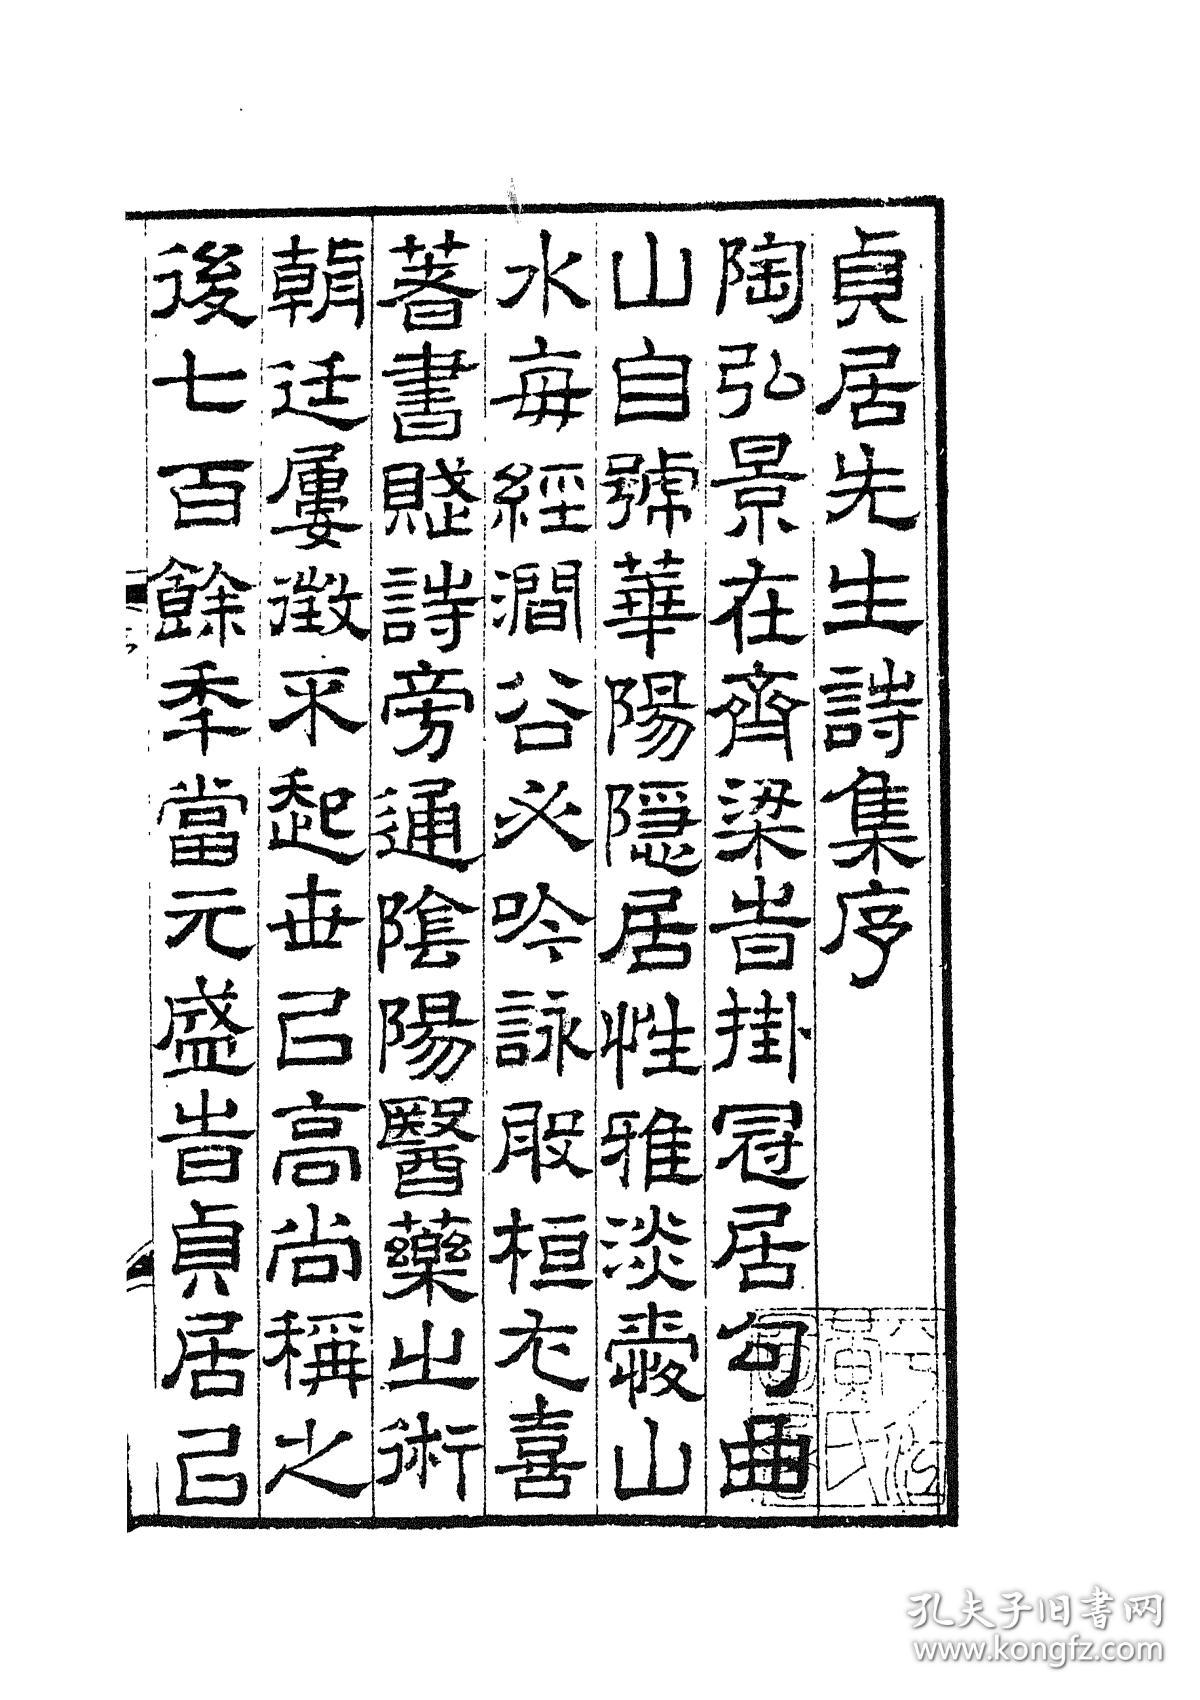 貞居先生詩集序
陶弘景在齊梁旹掛冠居句曲
山自號華陽隱居性雅淡愛山
水每經澗谷必吟詠盤桓尤喜
著書賦詩旁通陰陽醫藥之術
朝廷屢徵不起世以高尚稱之
後七百餘年當元盛旹貞居以
孔夫子旧书网
www.kongfz.com